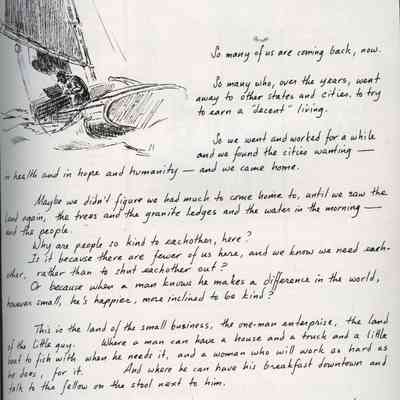 So many of us are coming back, now.
So many who, over the years, went
away to other states and cities, to try
to earn a "decent" living.
So we went and worked for a while
and we found the cities wanting —
in health and in hope and humanity — and we came home.
Maybe we didn't figure we had much to come home to, until we saw the
land again, the trees and the granite ledges and the water in the morning —
and the people.
Why are people so kind to eachother, here?
Is it because there are fewer of us here, and we know we need each-
other, rather than to shut eachother out?
Or because when a man knows he makes a difference in the world,
however small, he's happier, more inclined to be kind?
This is the land of the small business, the one-man enterprise, the land
of the little guy. Where a man can have a house and a truck and a little
boat to fish with when he needs it, and a woman who will work as hard as
he does, for it. And where he can have his breakfast downtown and
talk to the fellow on the stool next to him.